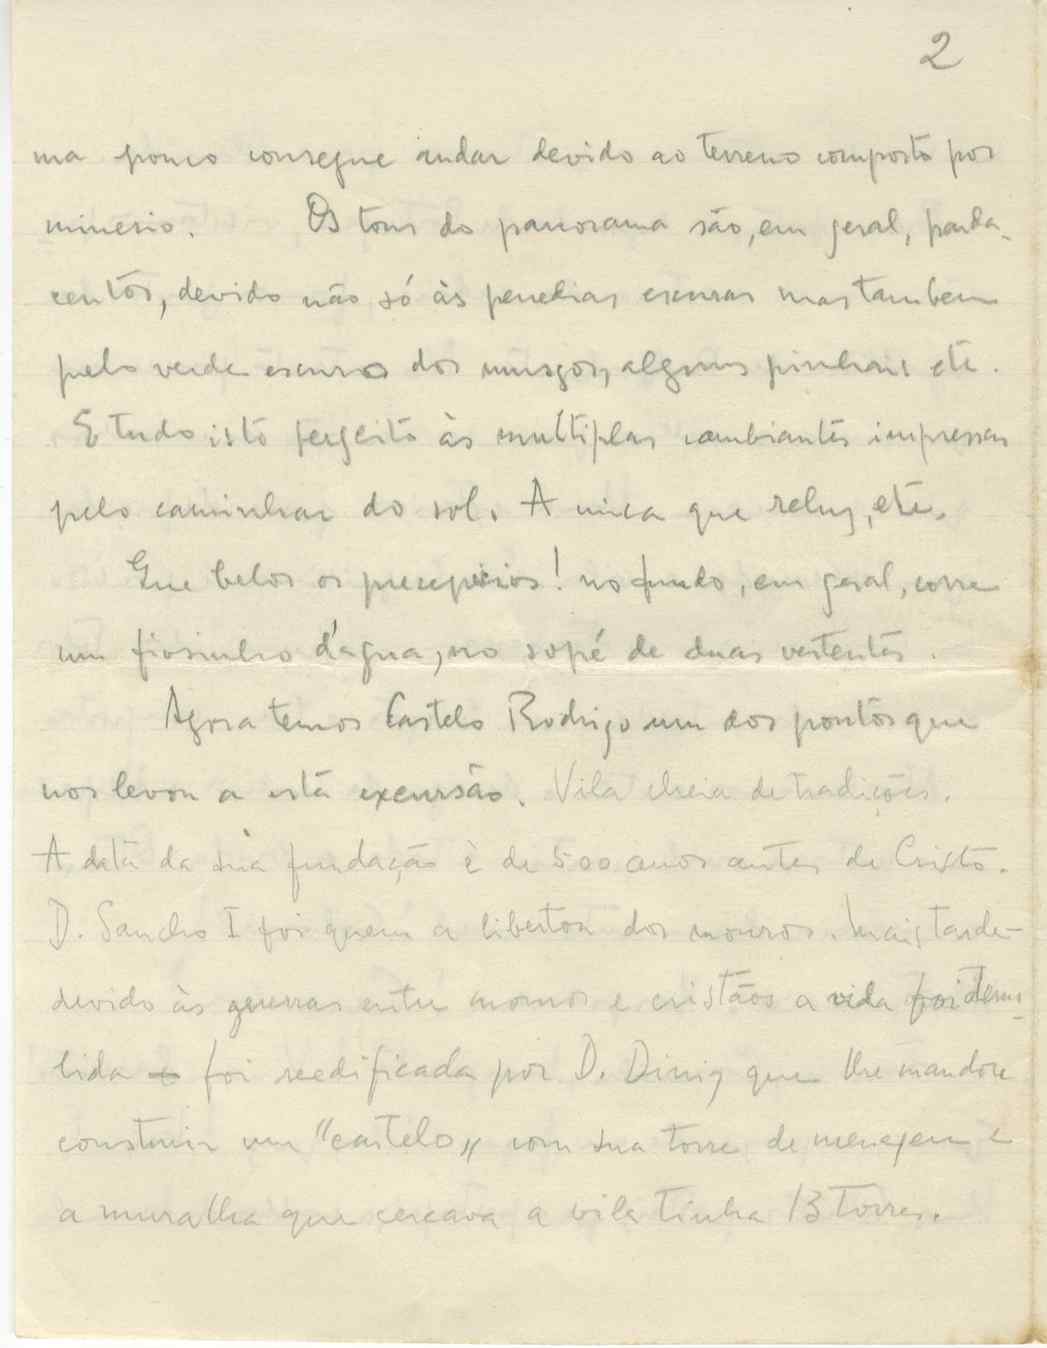 2
ma pouco consegue andar devido ao terreno composto por
minerio. Os tons do panorama são, em geral, parda-
centos, devido não só às penedias escuras mas tambem
pelo verde escuro dos musgos, alguns pinhais etc.
E tudo isto sugeito às multiplas cambiantes impressas
pelo caminhar do sol. A mica que reluz, etc.
Que belos os precepicios! no fundo, em geral, corre
um fiosinho d'agua, no sopé de duas vertentes.
Agora temos Castelo Rodrigo um dos pontos que
nos levou a esta excursão. Vila cheia de tradições.
A data da sua fundação é de 500 anos antes de Cristo.
D. Sancho I foi quem a libertou dos mouros. Mais tarde
devido às guerras entre mouros e cristãos a vida foi demo-
lida foi reedificada por D. Diniz que lhe mandou
construir um "castelo" com sua torre de menagem e
a muralha que cercava a vila tinha 13 torres.